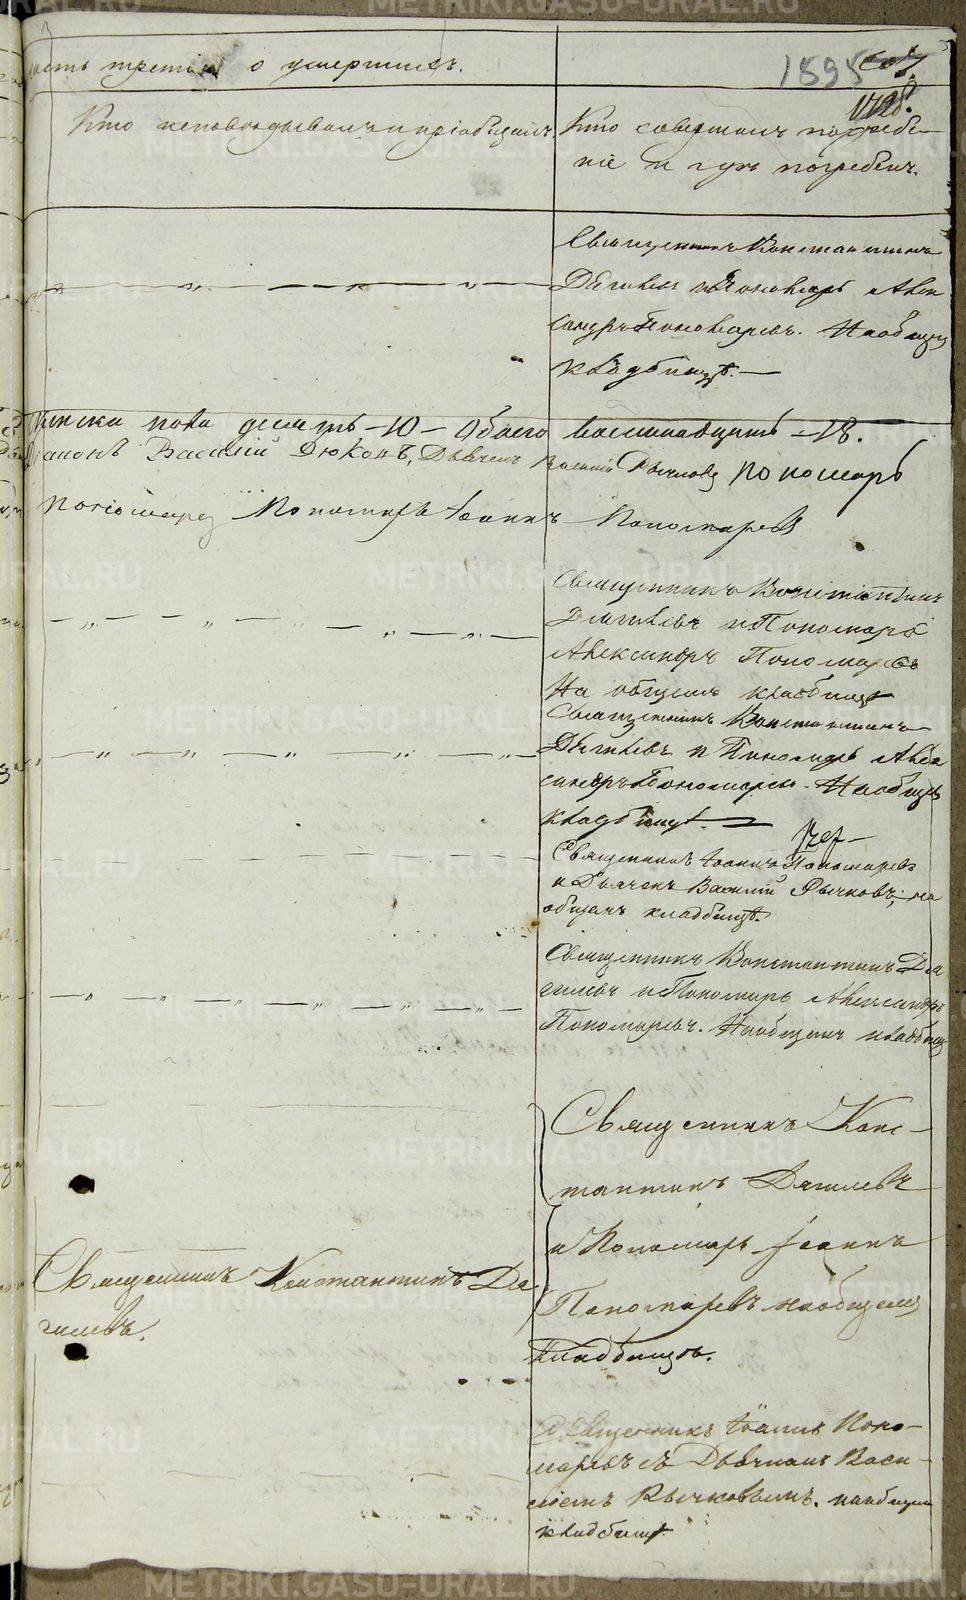 часть третiя о умершихъ.
1895
Кто исповѣдывалъ и прiобщалъ.
Кто совершалъ погребе-
нiе и гдѣ погребенъ.
Священникъ Константинъ
Дягилевъ и Пономарь Алек
сандръ Пономаревъ. На общемъ
кладбищѣ.
женска пола десять - 10 - Обоего восемнадцать - 18.
Дiаконъ Василiй Дюковъ, Дьячекъ Василiй Рычковъ пономарь
Пономарь Iоаннъ Пономаревъ
Священникъ Константинъ
Дягилевъ и Пономарь
Александръ Пономаревъ
На общемъ кладбищѣ
Священникъ Константинъ
Дягилевъ и Пономарь Алек
сандръ Пономаревъ. На общемъ
кладбищѣ.
Священникъ Iоаннъ Пономаревъ
и Дьячекъ Василiй Рычковъ; на
общемъ кладбищѣ.
Священникъ Константинъ Дя
гилевъ и Пономарь Александръ
Пономаревъ. На общемъ кладбищѣ
Священникъ Конс-
тантинъ Дягилевъ
и Пономарь Iоаннъ
Пономаревъ на общемъ
кладбищѣ.
Священникъ Константинъ Дя
гилевъ.
Священникъ Iоаннъ Поно-
маревъ съ Дьячкомъ Васи-
лiемъ Рычковымъ. на общемъ
кладбищѣ.
METRIKI.GASO-URAL.RU